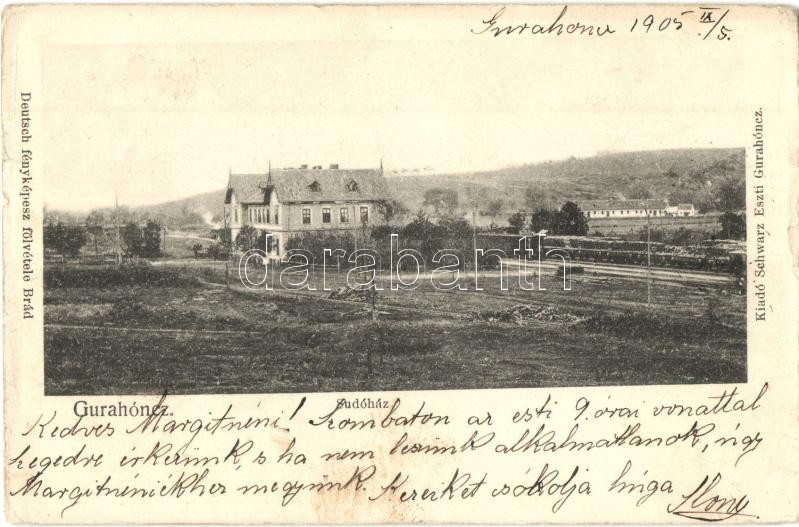 Gurahonc 1905 IX/5.
Deutsch fényképesz fölvétele Brád
Kiadó Schwarz Eszti Gurahóncz.
darabanth
Gurahóncz.
Sudóház.
Kedves Margitnéni! Szombaton az esti 9. órai vonattal
Szegedre érkezünk, s ha nem leszünk alkalmatlanok, úgy
Margitnéniékhez megyünk. Kezeiket csókolja húga Ilona